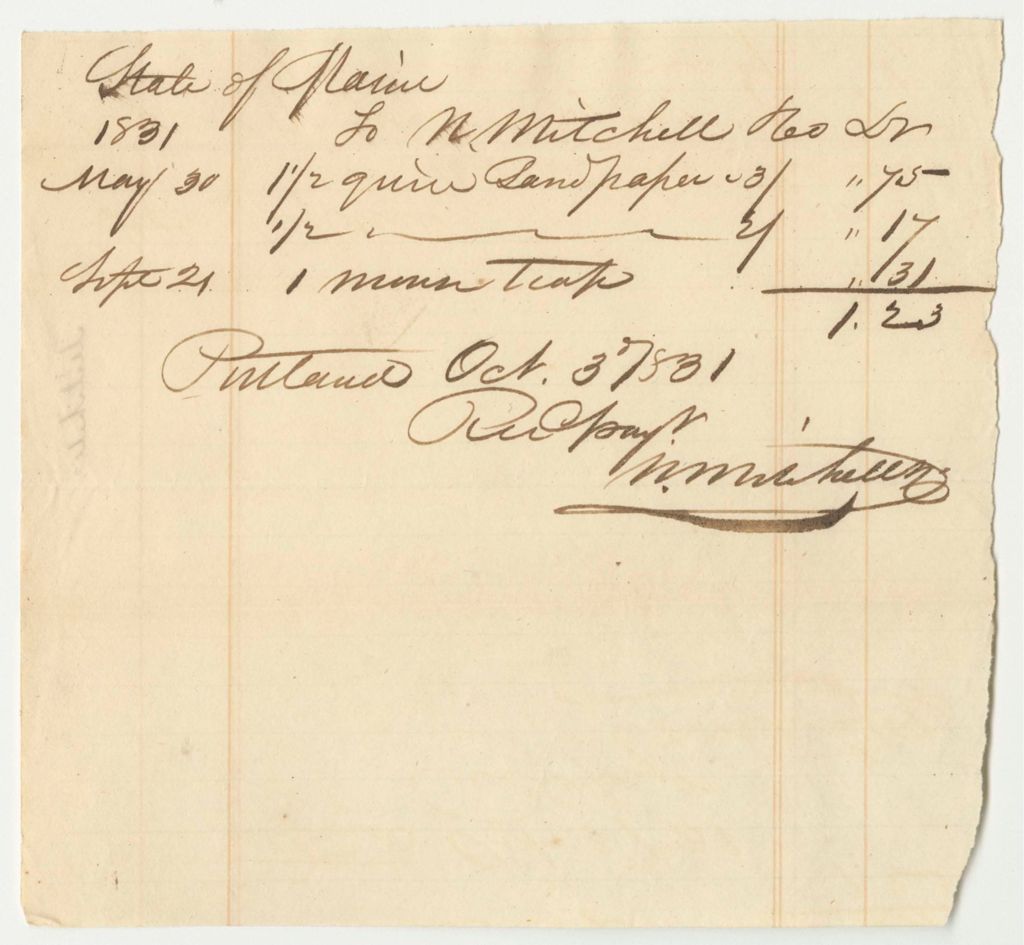 State of Maine
1831 To N. Mitchell & Co Dr
May 30 1 1/2 quire Sandpaper 3/ " 75
1/2 — 2/ " 17
Sept 21 1 mouse trap " 31
1.23
Portland Oct. 3d 1831
Recd payt
N. Mitchell & Co